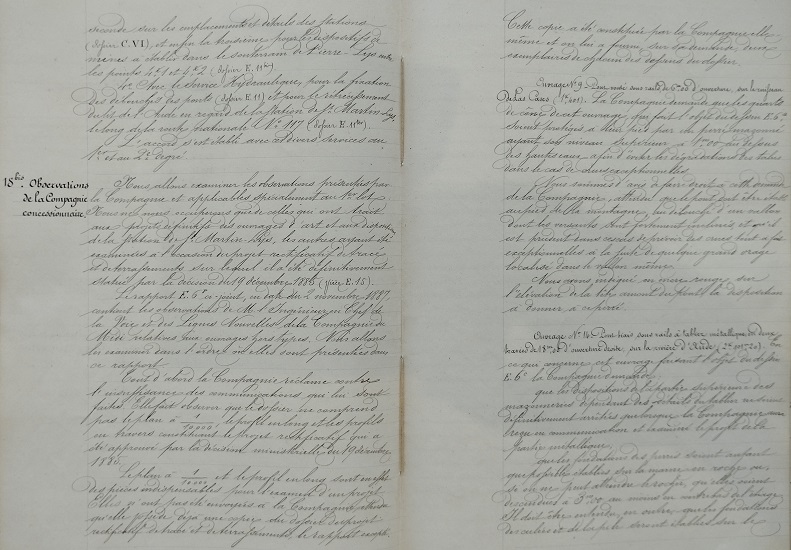 seconde sur les emplacements et détails des stations
(dossier C.VI), et enfin la troisième pour les dispositifs de
mines à établir dans le souterrain de Pierre-Lys entre
les points
4° Avec le Service Hydraulique, pour la fixation
des débouchés des ponts (dossier E.11) et pour le rétrécissement
du lit de l'Aude en regard de la station de St Martin-Lys,
le long de la route nationale N° 117 (dossier E.11
L'accord s'est établi avec ces divers services au
1er et au 2e degré.
18 bis. Observations
de la Compagnie
concessionnaire.
Nous allons examiner les observations présentées par
la Compagnie et applicables spécialement au 1er lot.
Nous ne nous occuperons que de celles qui ont trait
aux projets définitifs des ouvrages d'art et aux dispositions
de la station de St Martin-Lys, les autres ayant été
examinées à l'occasion du projet rectificatif de tracé
et de terrassements sur lequel il a été définitivement
statué par la décision du 19 décembre 1886 (pièce E.15).
Le rapport E.6 ci-joint, en date du 2 novembre 1887,
contient les observations de M. l'Ingénieur en Chef de
la Voie et des Lignes Nouvelles de la Compagnie du
Midi relatives aux ouvrages Nous allons
les examiner dans l'ordre où elles sont présentées dans
ce rapport.
Tout d'abord la Compagnie réclame contre
l'insuffisance des communications qui lui sont
faites. Elle fait observer que le dossier ne comprend
pas le plan à 1/10000, le profil en long et les profils
en travers constituant le projet rectificatif qui a
été approuvé par la décision ministérielle du 19 décembre
1886.
Le plan à 1/10000 et le profil en long sont en effet
des pièces indispensables pour l'examen d'un projet.
Elles n'ont pas été envoyées à la Compagnie attendu
qu'elle possède déjà une copie du dossier du projet
rectificatif de tracé et de terrassements, le rapport
Cette copie a été rectifiée par la Compagnie elle-
même et on lui a fourni, sur sa demande, deux
exemplaires de chacun des dessins du dossier.
Ouvrage N° 9. Pont voûté sous rails de 6m00 d'ouverture, sur le ruisseau
La Compagnie demande que les quarts
de cône de cet ouvrage, qui fait l'objet du dossier E.6
soient protégés à leur pied par un perré maçonné
ayant son niveau supérieur à 1m00 au dessus
des banquettes, afin d'éviter les dégradations des talus
dans le cas de crues exceptionnelles.
Nous sommes d'avis de faire droit à cette demande
de la Compagnie, attendu que le pont doit être établi
au pied de la montagne, au débouché d'un vallon
dont les versants sont fortement inclinés et qu'il
est prudent dans ce cas de prévoir des crues tout à fait
exceptionnelles à la suite de quelque grand orage
localisé dans le vallon même.
Nous avons indiqué en encre rouge sur
l'élévation de la tête amont du pont la disposition
à donner à ce perré.
Ouvrage N° 14. Pont biais sous rails à tablier métallique de deux
travées de 18m00 d'ouverture droite, sur la rivière d'Aude
ce qui concerne cet ouvrage faisant l'objet du dossier
E.6 la Compagnie demande:
que les dispositions de la partie supérieure des
maçonneries dépendant des détails du tablier ne soient
définitivement arrêtées que lorsque la Compagnie aura
reçu en communication et examiné le projet de la
partie métallique;
que les fondations des piles soient autant
que possible établies sur la roche, ou,
si on ne peut atteindre le rocher, qu'elles soient
descendues à 3m00 au moins en contrebas de l'étiage.
Il doit être entendu, en outre, que les fondations
des culées et de la pile seront établies sur le